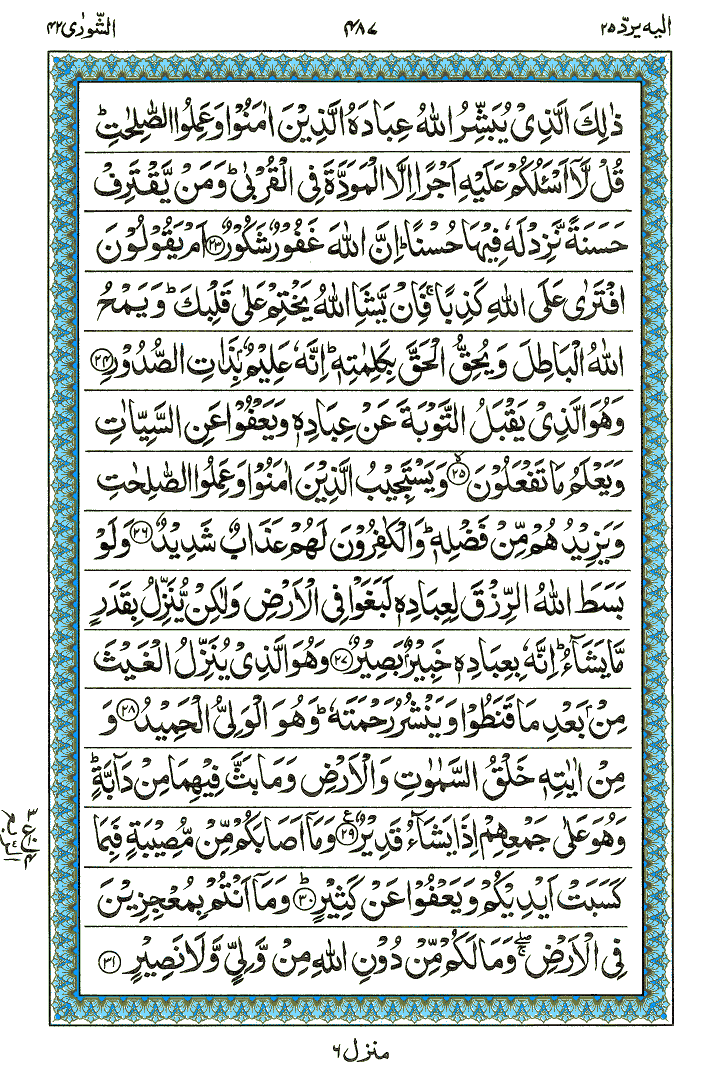 الیہ یردّ ۲۵ ۴۸۷ الشّورٰی ۴۲
ذٰلِكَ الَّذِیْ یُبَشِّرُ اللّٰهُ عِبَادَهُ الَّذِیْنَ اٰمَنُوْا وَعَمِلُوا الصّٰلِحٰتِ ؕ
قُلْ لَّاۤ اَسْـَٔلُكُمْ عَلَیْهِ اَجْرًا اِلَّا الْمَوَدَّةَ فِی الْقُرْبٰی ؕ وَمَنْ یَّقْتَرِفْ
حَسَنَةً نَّزِدْ لَهٗ فِیْهَا حُسْنًا ؕ اِنَّ اللّٰهَ غَفُوْرٌ شَكُوْرٌ ﴿۲۳﴾ اَمْ یَقُوْلُوْنَ
افْتَرٰی عَلَی اللّٰهِ كَذِبًا ۚ فَاِنْ یَّشَاِ اللّٰهُ یَخْتِمْ عَلٰی قَلْبِكَ ؕ وَیَمْحُ
اللّٰهُ الْبَاطِلَ وَیُحِقُّ الْحَقَّ بِكَلِمٰتِهٖ ؕ اِنَّهٗ عَلِیْمٌۢ بِذَاتِ الصُّدُوْرِ ﴿۲۴﴾
وَهُوَ الَّذِیْ یَقْبَلُ التَّوْبَةَ عَنْ عِبَادِهٖ وَیَعْفُوْا عَنِ السَّیِّاٰتِ
وَیَعْلَمُ مَا تَفْعَلُوْنَ ﴿۲۵﴾ وَیَسْتَجِیْبُ الَّذِیْنَ اٰمَنُوْا وَعَمِلُوا الصّٰلِحٰتِ
وَیَزِیْدُهُمْ مِّنْ فَضْلِهٖ ؕ وَالْكٰفِرُوْنَ لَهُمْ عَذَابٌ شَدِیْدٌ ﴿۲۶﴾ وَلَوْ
بَسَطَ اللّٰهُ الرِّزْقَ لِعِبَادِهٖ لَبَغَوْا فِی الْاَرْضِ وَلٰكِنْ یُّنَزِّلُ بِقَدَرٍ
مَّا یَشَآءُ ؕ اِنَّهٗ بِعِبَادِهٖ خَبِیْرٌۢ بَصِیْرٌ ﴿۲۷﴾ وَهُوَ الَّذِیْ یُنَزِّلُ الْغَیْثَ
مِنْۢ بَعْدِ مَا قَنَطُوْا وَیَنْشُرُ رَحْمَتَهٗ ؕ وَهُوَ الْوَلِیُّ الْحَمِیْدُ ﴿۲۸﴾ وَ
مِنْ اٰیٰتِهٖ خَلْقُ السَّمٰوٰتِ وَالْاَرْضِ وَمَا بَثَّ فِیْهِمَا مِنْ دَآبَّةٍ ؕ
وَهُوَ عَلٰی جَمْعِهِمْ اِذَا یَشَآءُ قَدِیْرٌ ﴿۲۹﴾ وَمَاۤ اَصَابَكُمْ مِّنْ مُّصِیْبَةٍ فَبِمَا
كَسَبَتْ اَیْدِیْكُمْ وَیَعْفُوْا عَنْ كَثِیْرٍ ﴿۳۰﴾ وَمَاۤ اَنْتُمْ بِمُعْجِزِیْنَ
فِی الْاَرْضِ ۖۚ وَمَا لَكُمْ مِّنْ دُوْنِ اللّٰهِ مِنْ وَّلِیٍّ وَّلَا نَصِیْرٍ ﴿۳۱﴾
منزل ۶